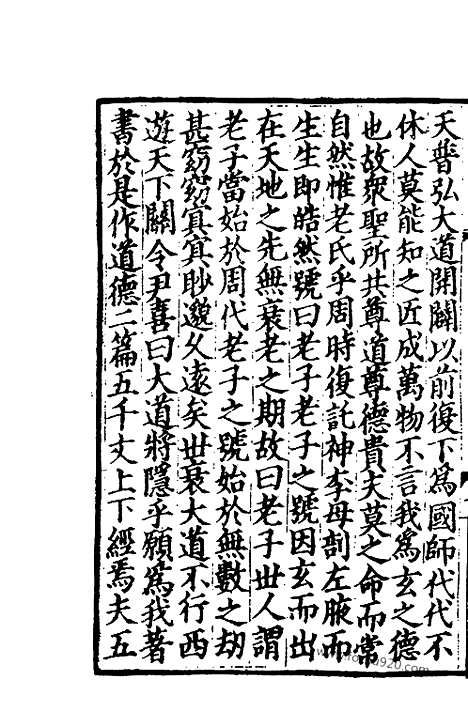 天普弘大道開闢以前復下爲國師代代不
休人莫能知之匠成萬物不言我爲玄之德
也故衆聖所共尊道尊德貴夫莫之命而常
自然惟老氏乎周時復託神李母剖左腋而
生生即皓然號曰老子老子之號因玄而出
在天地之先無衰老之期故曰老子世人謂
老子當始於周代老子之號始於無數之劫
甚窈窈冥冥眇邈久遠矣世衰大道不行西
遊天下關令尹喜曰大道將隱乎願爲我著
書於是作道德二篇五千文上下經焉夫五